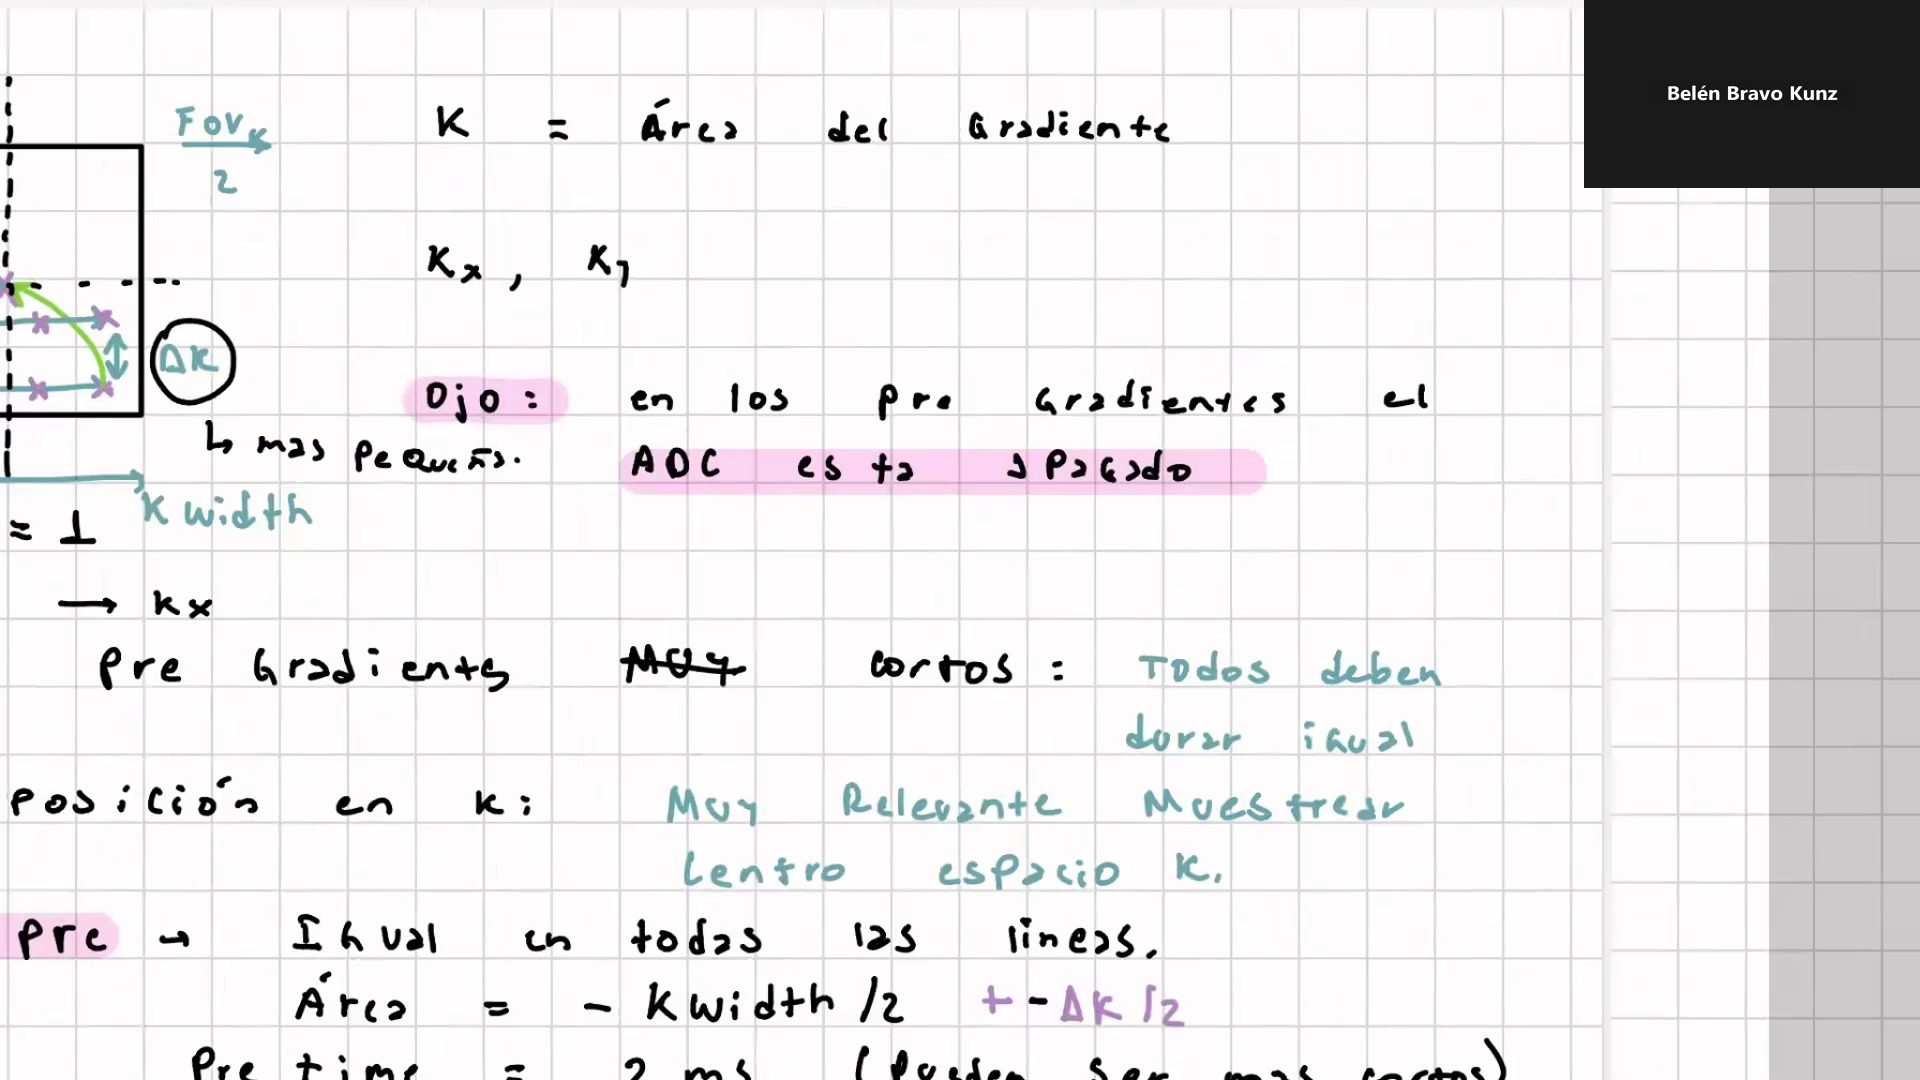 Belén Bravo Kunz
Fov_K
2
K = Área del Gradiente
Kx , Ky
ΔK
Ojo: en los pre Gradientes el
↳ mas pequeño.
ADC esta apagado
K width
= 1
→ kx
Pre Gradientes MUY cortos : Todos deben
durar igual
Posición en k: Muy Relevante Muestrear
Centro espacio K.
pre → Igual en todas las lineas.
Área = - Kwidth/2 + - ΔK/2
Pre time = 2 ms (pueden ser mas cortos)